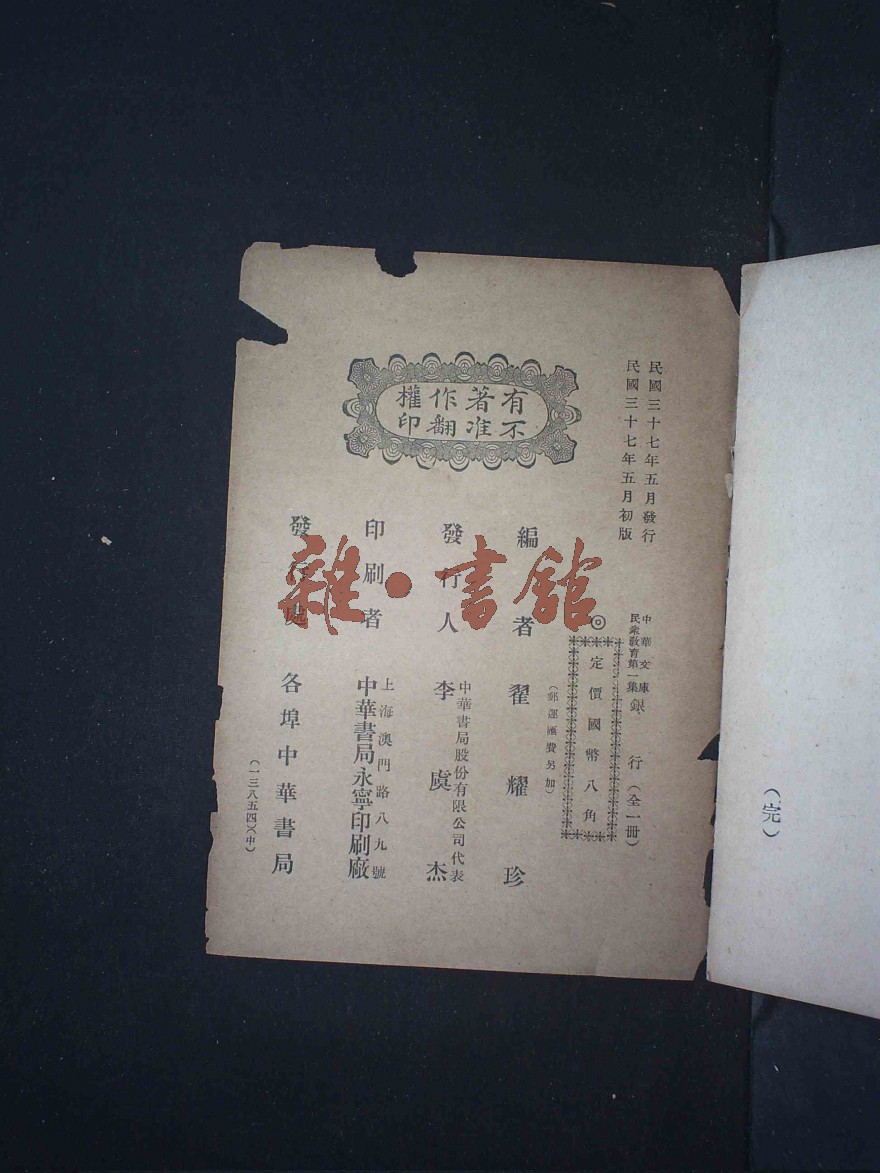 民國三十七年五月發行
民國三十七年五月初版
中華文庫
民衆教育第一集
銀行（全一冊）
◎定價國幣八角
（郵運匯費另加）
有著作權
不准翻印
編者 翟耀珍
發行人 李虞杰
中華書局股份有限公司代表
印刷者 中華書局永寧印刷廠
上海澳門路八九號
發行處 各埠中華書局
（一三八五四）（中）
（完）
雜·書館